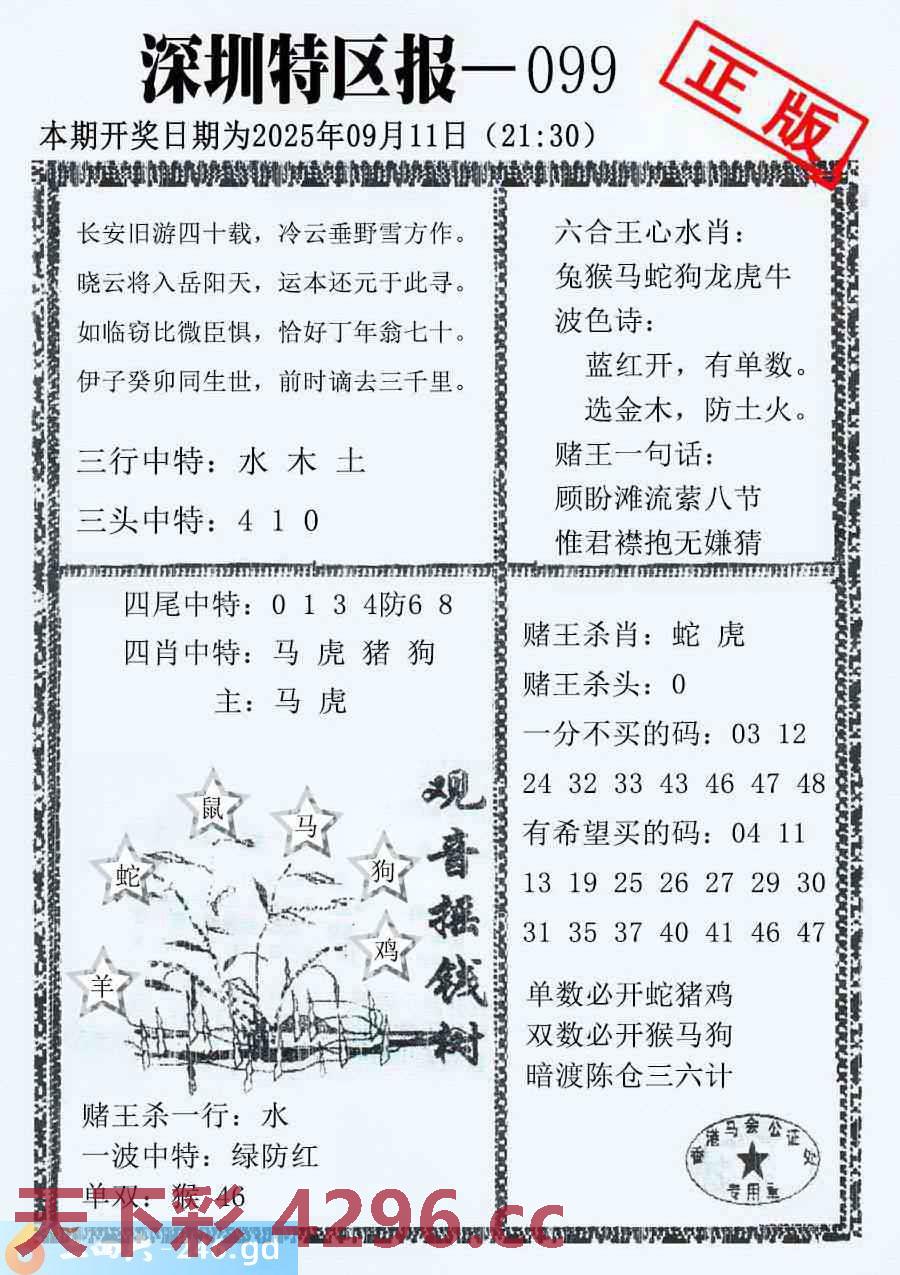 深圳特区报—099
正版
本期开奖日期为2025年09月11日（21:30）
长安旧游四十载，冷云垂野雪方作。
晓云将入岳阳天，运本还元于此寻。
如临窃比微臣惧，恰好丁年翁七十。
伊子癸卯同生世，前时谪去三千里。
三行中特：水 木 土
三头中特：4 1 0
六合王心水肖：
兔猴马蛇狗龙虎牛
波色诗：
蓝红开，有单数。
选金木，防土火。
赌王一句话：
顾盼滩流萦八节
惟君襟抱无嫌猜
四尾中特：0 1 3 4防6 8
四肖中特：马 虎 猪 狗
主：马 虎
鼠
马
蛇
狗
鸡
羊
观音摇钱树
赌王杀一行：水
一波中特：绿防红
单双：猴 46
赌王杀肖：蛇 虎
赌王杀头：0
一分不买的码：03 12
24 32 33 43 46 47 48
有希望买的码：04 11
13 19 25 26 27 29 30
31 35 37 40 41 46 47
单数必开蛇猪鸡
双数必开猴马狗
暗渡陈仓三六计
香港马会公证处
专用章
天下彩 4296.cc
-246.gd